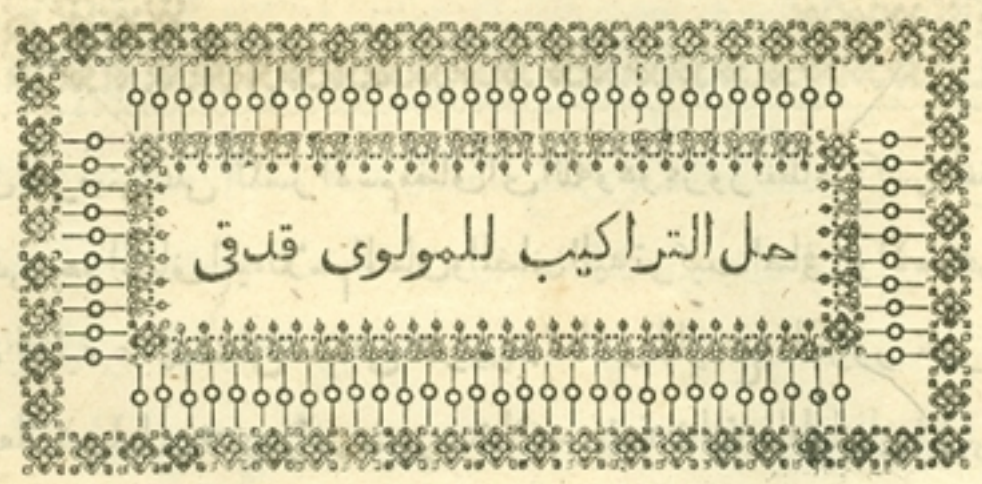 حل التراكيب للمولوى قدقى